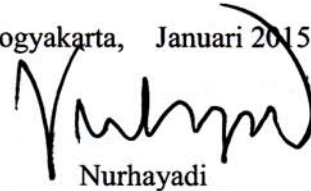 ogyakarta, Januari 2015
Nurhayadi